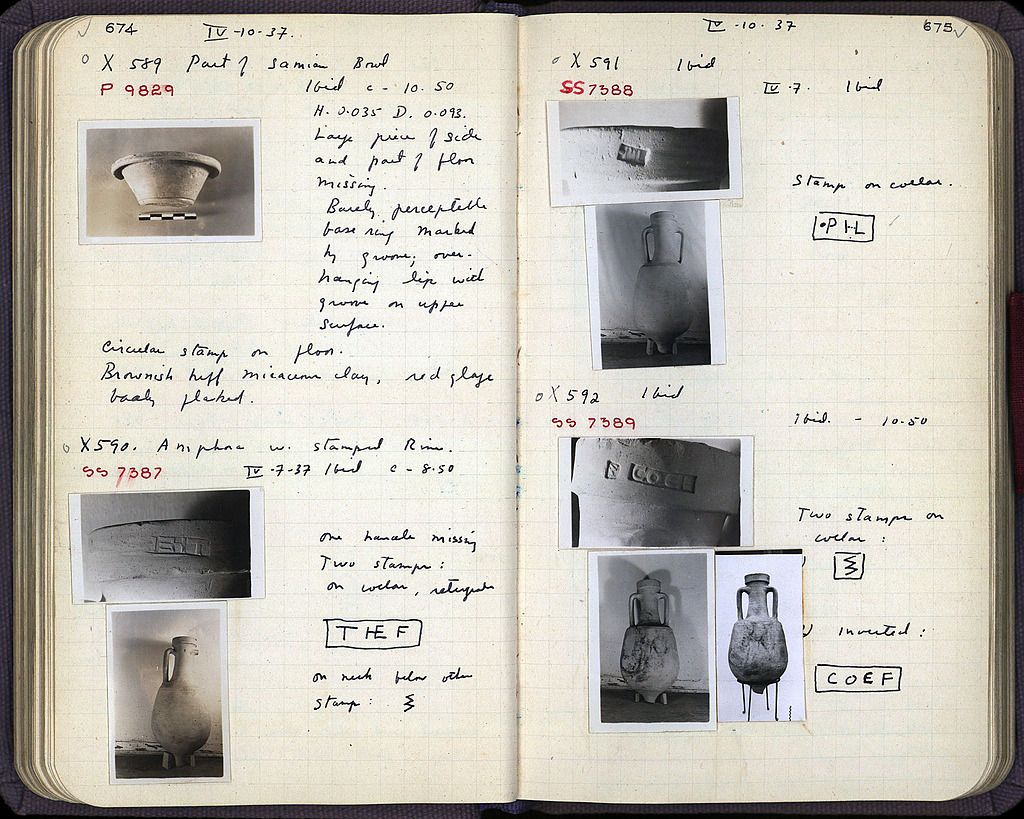 674
IV-10-37.
X 589 Part of Samian Bowl
P 9829
Ibid c - 10.50
H. 0.035 D. 0.093.
Large piece of side
and part of floor
missing.
Barely perceptible
base ring marked
by groove; over-
hanging lip with
groove on upper
surface.
Circular stamp on floor.
Brownish buff micaceous clay, red glaze
badly flaked.
X 590. Amphora w. stamped Rim.
SS 7387
IV-7-37 Ibid c - 8.50
one handle missing
Two stamps:
on collar, retrograde
THEF
on neck below other
stamp:
IV-10-37
675
X 591 Ibid
SS 7388
IV-7. Ibid
Stamp on collar.
•PHL
X 592 Ibid
SS 7389
Ibid. - 10.50
COEF
Two stamps on
collar:
inverted:
COEF